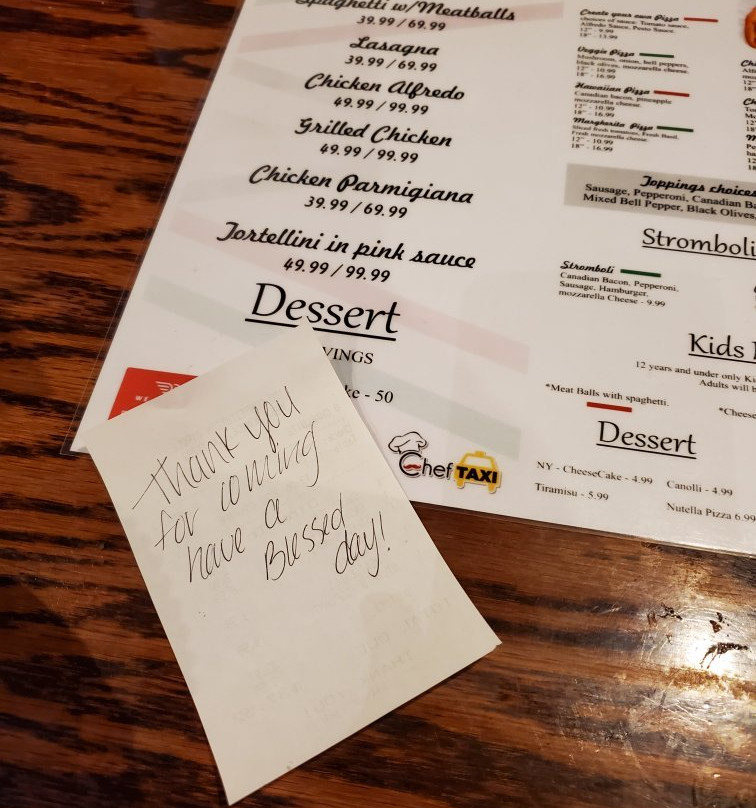 Spaghetti w/Meatballs
39.99 / 69.99
Lasagna
39.99 / 69.99
Chicken Alfredo
49.99 / 99.99
Grilled Chicken
49.99 / 99.99
Chicken Parmigiana
39.99 / 69.99
Tortellini in pink sauce
49.99 / 99.99
Dessert
VINGS
ke - 50
WE
thank you
for coming
have a
Blessed
day!
Chef TAXI
Create your own Pizza
choices of sauce: Tomato sauce,
Alfredo Sauce, Pesto Sauce.
12" - 9.99
18" - 13.99
Veggie Pizza
Mushroom, onion, bell peppers,
black olives, mozzarella cheese.
12" - 10.99
18" - 16.99
Hawaiian Pizza
Canadian bacon, pineapple
mozzarella cheese.
12" - 10.99
18" - 16.99
Margherita Pizza
Sliced fresh tomatoes, Fresh Basil,
Fresh mozzarella cheese.
12" - 10.99
18" - 16.99
Toppings choices
Sausage, Pepperoni, Canadian Ba
Mixed Bell Pepper, Black Olives,
Stromboli
Stromboli
Canadian Bacon, Pepperoni,
Sausage, Hamburger,
mozzarella Cheese - 9.99
Kids
12 years and under only Ki
Adults will b
*Meat Balls with spaghetti.
*Cheese
Dessert
NY - CheeseCake - 4.99
Canolli - 4.99
Tiramisu - 5.99
Nutella Pizza 6.99